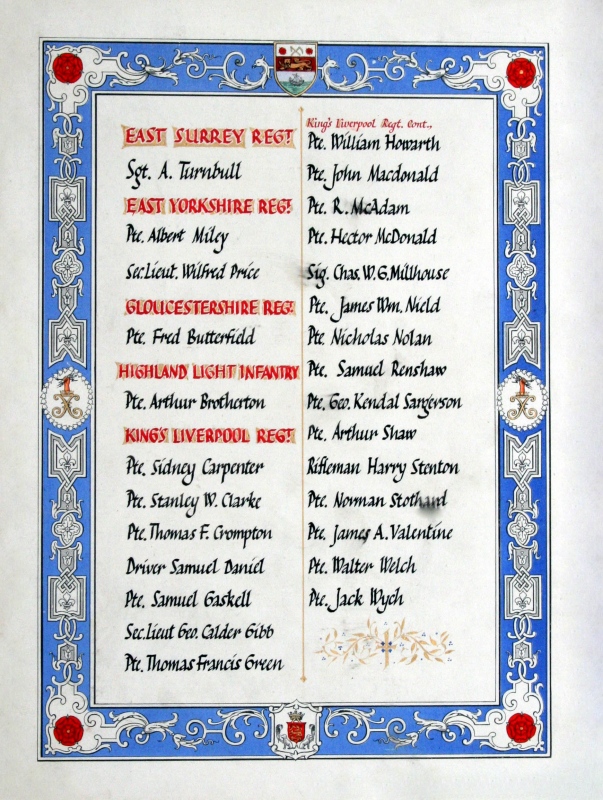 EAST SURREY REGT.
Sgt. A. Turnbull
EAST YORKSHIRE REGT.
Pte. Albert Miley
Sec.Lieut. Wilfred Price
GLOUCESTERSHIRE REGT.
Pte. Fred Butterfield
HIGHLAND LIGHT INFANTRY
Pte. Arthur Brotherton
KING'S LIVERPOOL REGT.
Pte. Sidney Carpenter
Pte. Stanley W. Clarke
Pte. Thomas F. Crompton
Driver Samuel Daniel
Pte. Samuel Gaskell
Sec.Lieut Geo. Calder Gibb
Pte. Thomas Francis Green
King's Liverpool Regt. Cont.,
Pte. William Howarth
Pte. John Macdonald
Pte. R. McAdam
Pte. Hector McDonald
Sig. Chas. W. G. Millhouse
Pte. James Wm. Nield
Pte. Nicholas Nolan
Pte. Samuel Renshaw
Pte. Geo. Kendal Sargerson
Pte. Arthur Shaw
Rifleman Harry Stenton
Pte. Norman Stothard
Pte. James A. Valentine
Pte. Walter Welch
Pte. Jack Wych